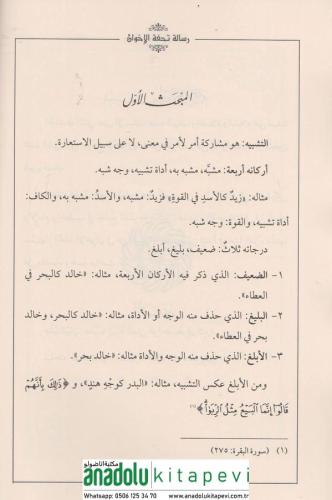 رسالة تحفة الإخوان
المبحث الأول
التشبيه: هو مشاركة أمر لأمر في معنى، لا على سبيل الاستعارة.
أركانه أربعة: مشبَّه، مشبه به، أداة تشبيه، وجه شبه.
مثاله: «زيدٌ كالأسدِ في القوةِ» فزيدٌ: مشبه، والأسدُ: مشبه به، والكاف:
أداة تشبيه، والقوة: وجه شبه.
درجاته ثلاثٌ: ضعيف، بليغ، أبلغ.
١- الضعيف: الذي ذكر فيه الأركان الأربعة، مثاله: «خالد كالبحر في
العطاء».
٢- البليغ: الذي حذف منه الوجه أو الأداة، مثاله: «خالد كالبحر، وخالد
بحر في العطاء».
٣- الأبلغ: الذي حذف منه الوجه والأداة مثاله: «خالد بحر».
ومن الأبلغ عكس التشبيه، مثاله: «البدر كوجْهِ هندٍ»، و ﴿ذَٰلِكَ بِأَنَّهُمْ
قَالُوٓا۟ إِنَّمَا ٱلْبَيْعُ مِثْلُ ٱلرِّبَوٰا۟﴾(١)
(١) (سورة البقرة: ٢٧٥)
مكتبة اناضولو
anadolukitapevi
Whatsapp: 0506 125 34 70 www.anadolukitapevi.com